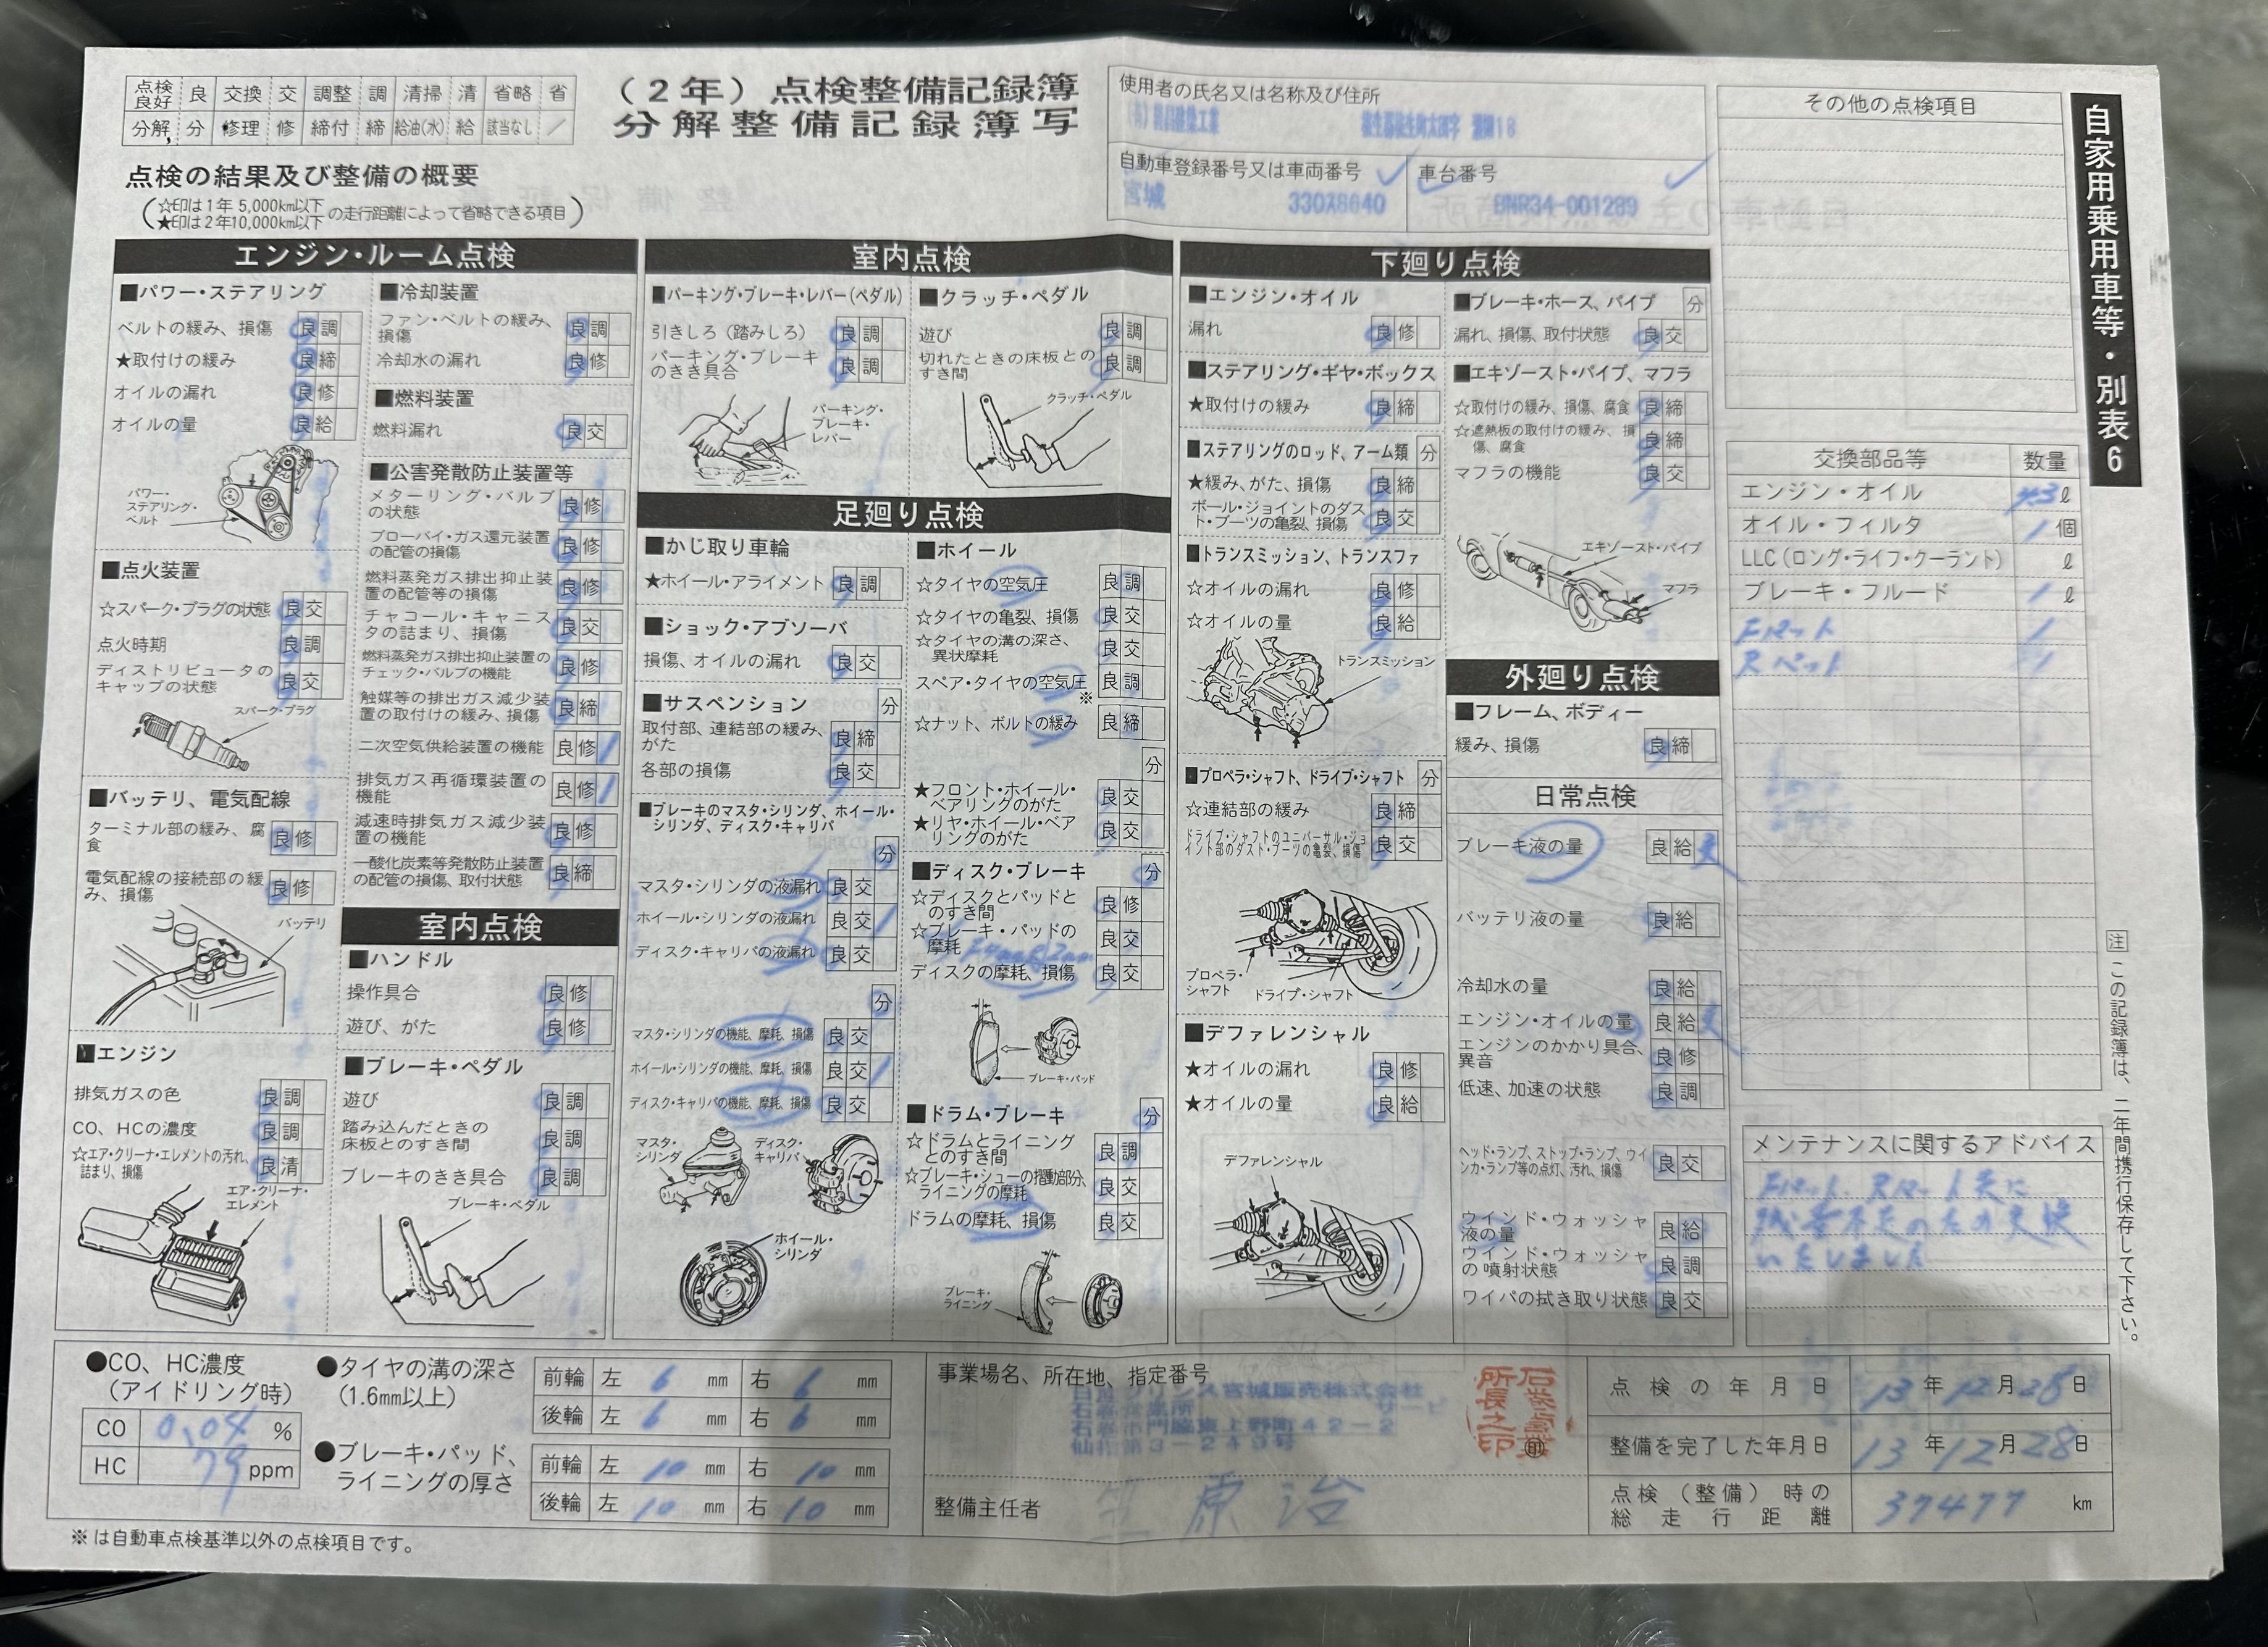 点検良好 良 交換 交 調整 調 清掃 清 省略 省
分解 分 修理 修 締付 締 給油(水) 給 該当なし /
(2年)点検整備記録簿
分解整備記録簿写
点検の結果及び整備の概要
☆印は1年 5,000km以下
★印は2年10,000km以下 の走行距離によって省略できる項目
使用者の氏名又は名称及び住所
自動車登録番号又は車両番号
宮城 330ス8640
車台番号
BNR34-001289
その他の点検項目
自家用乗用車等・別表6
エンジン・ルーム点検
■パワー・ステアリング
ベルトの緩み、損傷 良 調
★取付けの緩み 良 締
オイルの漏れ 良 修
オイルの量 良 給
パワー・
ステアリング・
ベルト
■点火装置
☆スパーク・プラグの状態 良 交
点火時期 良 調
ディストリビュータの
キャップの状態 良 交
スパーク・プラグ
■バッテリ、電気配線
ターミナル部の緩み、腐
食 良 修
電気配線の接続部の緩
み、損傷 良 修
バッテリ
■エンジン
排気ガスの色 良 調
CO、HCの濃度 良 調
☆エア・クリーナ・エレメントの汚れ、
詰まり、損傷 良 清
エア・クリーナ・
エレメント
■冷却装置
ファン・ベルトの緩み、
損傷 良 調
冷却水の漏れ 良 修
■燃料装置
燃料漏れ 良 交
■公害発散防止装置等
メターリング・バルブ
の状態 良 修
ブローバイ・ガス還元装置
の配管の損傷 良 修
燃料蒸発ガス排出抑止装
置の配管等の損傷 良 修
チャコール・キャニス
タの詰まり、損傷 良 交
燃料蒸発ガス排出抑止装置の
チェック・バルブの機能 良 修
触媒等の排出ガス減少装
置の取付けの緩み、損傷 良 締
二次空気供給装置の機能 良 修 /
排気ガス再循環装置の
機能 良 修 /
減速時排気ガス減少装
置の機能 良 修
一酸化炭素等発散防止装置
の配管の損傷、取付状態 良 締
室内点検
■ハンドル
操作具合 良 修
遊び、がた 良 修
■ブレーキ・ペダル
遊び 良 調
踏み込んだときの
床板とのすき間 良 調
ブレーキのきき具合 良 調
ブレーキ・ペダル
室内点検
■パーキング・ブレーキ・レバー(ペダル)
引きしろ(踏みしろ) 良 調
パーキング・ブレーキ
のきき具合 良 調
パーキング・
ブレーキ・
レバー
■クラッチ・ペダル
遊び 良 調
切れたときの床板との
すき間 良 調
クラッチ・ペダル
足廻り点検
■かじ取り車輪
★ホイール・アライメント 良 調
■ショック・アブソーバ
損傷、オイルの漏れ 良 交
■サスペンション 分
取付部、連結部の緩み、
がた 良 締
各部の損傷 良 交
■ブレーキのマスタ・シリンダ、ホイール・
シリンダ、ディスク・キャリパ
分
マスタ・シリンダの液漏れ 良 交
ホイール・シリンダの液漏れ 良 交 /
ディスク・キャリパの液漏れ 良 交
分
マスタ・シリンダの機能、摩耗、損傷 良 交
ホイール・シリンダの機能、摩耗、損傷 良 交 /
ディスク・キャリパの機能、摩耗、損傷 良 交
マスタ・
シリンダ
ディスク・
キャリパ
ホイール・
シリンダ
■ホイール
☆タイヤの空気圧 良 調
☆タイヤの亀裂、損傷 良 交
☆タイヤの溝の深さ、
異状摩耗 良 交
スペア・タイヤの空気圧 良 調
※
☆ナット、ボルトの緩み 良 締
分
★フロント・ホイール・
ベアリングのがた 良 交
★リヤ・ホイール・ベア
リングのがた 良 交
■ディスク・ブレーキ 分
☆ディスクとパッドと
のすき間 良 修
☆ブレーキ・パッドの
摩耗 良 交
ディスクの摩耗、損傷 良 交
ブレーキ・パッド
■ドラム・ブレーキ 分
☆ドラムとライニング
とのすき間 良 調
☆ブレーキ・シューの摺動部分、
ライニングの摩耗 良 交
ドラムの摩耗、損傷 良 交
ブレーキ・
ライニング
下廻り点検
■エンジン・オイル
漏れ 良 修
■ステアリング・ギヤ・ボックス
★取付けの緩み 良 締
■ステアリングのロッド、アーム類 分
★緩み、がた、損傷 良 締
ボール・ジョイントのダス
ト・ブーツの亀裂、損傷 良 交
■トランスミッション、トランスファ
☆オイルの漏れ 良 修
☆オイルの量 良 給
トランスミッション
■プロペラ・シャフト、ドライブ・シャフト 分
☆連結部の緩み 良 締
ドライブ・シャフトのユニバーサル・ジョ
イント部のダスト・ブーツの亀裂、損傷 良 交
プロペラ・
シャフト
ドライブ・シャフト
■デファレンシャル
★オイルの漏れ 良 修
★オイルの量 良 給
デファレンシャル
■ブレーキ・ホース、パイプ 分
漏れ、損傷、取付状態 良 交
■エキゾースト・パイプ、マフラ
☆取付けの緩み、損傷、腐食 良 締
☆遮熱板の取付けの緩み、損
傷、腐食 良 締
マフラの機能 良 交
エキゾースト・パイプ
マフラ
外廻り点検
■フレーム、ボディー
緩み、損傷 良 締
日常点検
ブレーキ液の量 良 給 交
バッテリ液の量 良 給
冷却水の量 良 給
エンジン・オイルの量 良 給 交
エンジンのかかり具合、
異音 良 修
低速、加速の状態 良 調
ヘッド・ランプ、ストップ・ランプ、ウイ
ンカ・ランプ等の点灯、汚れ、損傷 良 交
ウインド・ウォッシャ
液の量 良 給
ウインド・ウォッシャ
の噴射状態 良 調
ワイパの拭き取り状態 良 交
交換部品等 数量
エンジン・オイル ℓ
オイル・フィルタ 1 個
LLC(ロング・ライフ・クーラント) ℓ
ブレーキ・フルード 1 ℓ
Fパット 1
Rパット 1
メンテナンスに関するアドバイス
Fパット、Rパット共に
残量不足のため交換
いたしました
注 この記録簿は、二年間携行保存して下さい。
●CO、HC濃度
(アイドリング時)
CO 0.04 %
HC 79 ppm
●タイヤの溝の深さ
(1.6mm以上)
前輪 左 6 mm 右 6 mm
後輪 左 6 mm 右 6 mm
●ブレーキ・パッド、
ライニングの厚さ
前輪 左 10 mm 右 10 mm
後輪 左 10 mm 右 10 mm
事業場名、所在地、指定番号
日産プリンス宮城販売株式会社
石巻市門脇東上野町42-2
整備主任者
点検の年月日 13年12月28日
整備を完了した年月日 13年12月28日
点検(整備)時の
総走行距離 37477 km
※は自動車点検基準以外の点検項目です。